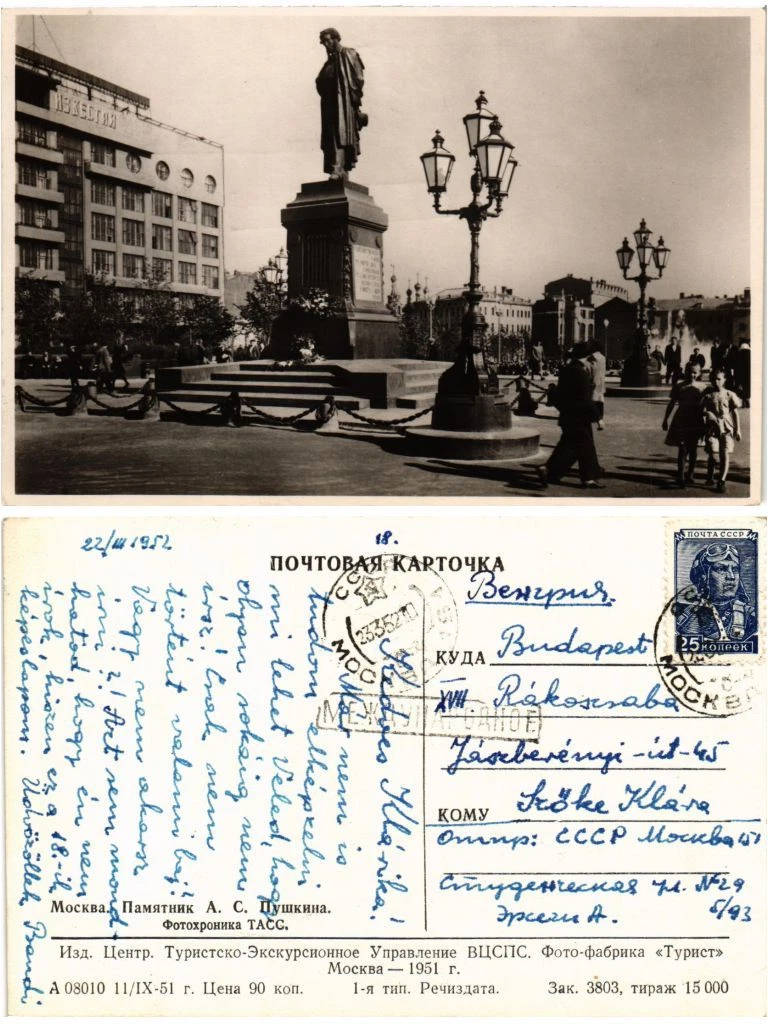 ИЗВЕСТИЯ
22/III 1952
18.
ПОЧТОВАЯ КАРТОЧКА
ПОЧТА СССР
25 КОПЕЕК
СССР
МОСКВА
23352
МОСКВА
МЕЖДУНАРОДНОЕ
Kedves Klárika!
Már nem is
tudom elképzelni
mi lehet Veled, hogy
olyan sokáig nem
írsz! Csak nem
történt valami baj?
Vagy nem akarsz
írni? Azt nem mond-
hatod, hogy én nem
írok, hiszen ez a 18.-ik
képeslapom. Üdvözöllek Bandi
Венгрия.
КУДА Budapest
XVII Rákoscsaba
Jászberényi-út-45
КОМУ Szőke Klára
Отпр: СССР Москва
Студенческая ул. № 29
Эрсеги А. б/93
Москва. Памятник А. С. Пушкина.
Фотохроника ТАСС.
Изд. Центр. Туристско-Экскурсионное Управление ВЦСПС. Фото-фабрика «Турист»
Москва — 1951 г.
А 08010 11/IX-51 г. Цена 90 коп. 1-я тип. Речиздата. Зак. 3803, тираж 15 000